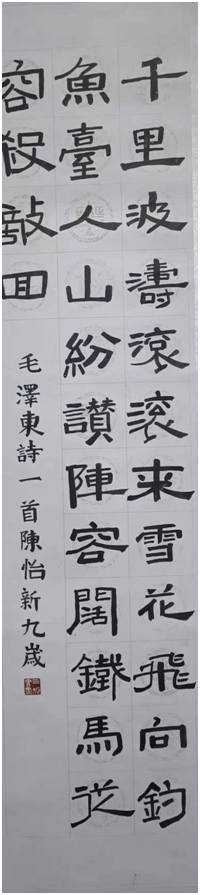 千里波濤滾滾来雪花飛向釣
魚臺人山紛讃陣容闊鐵馬從
容殺敵回
毛澤東詩一首陳怡新九歲